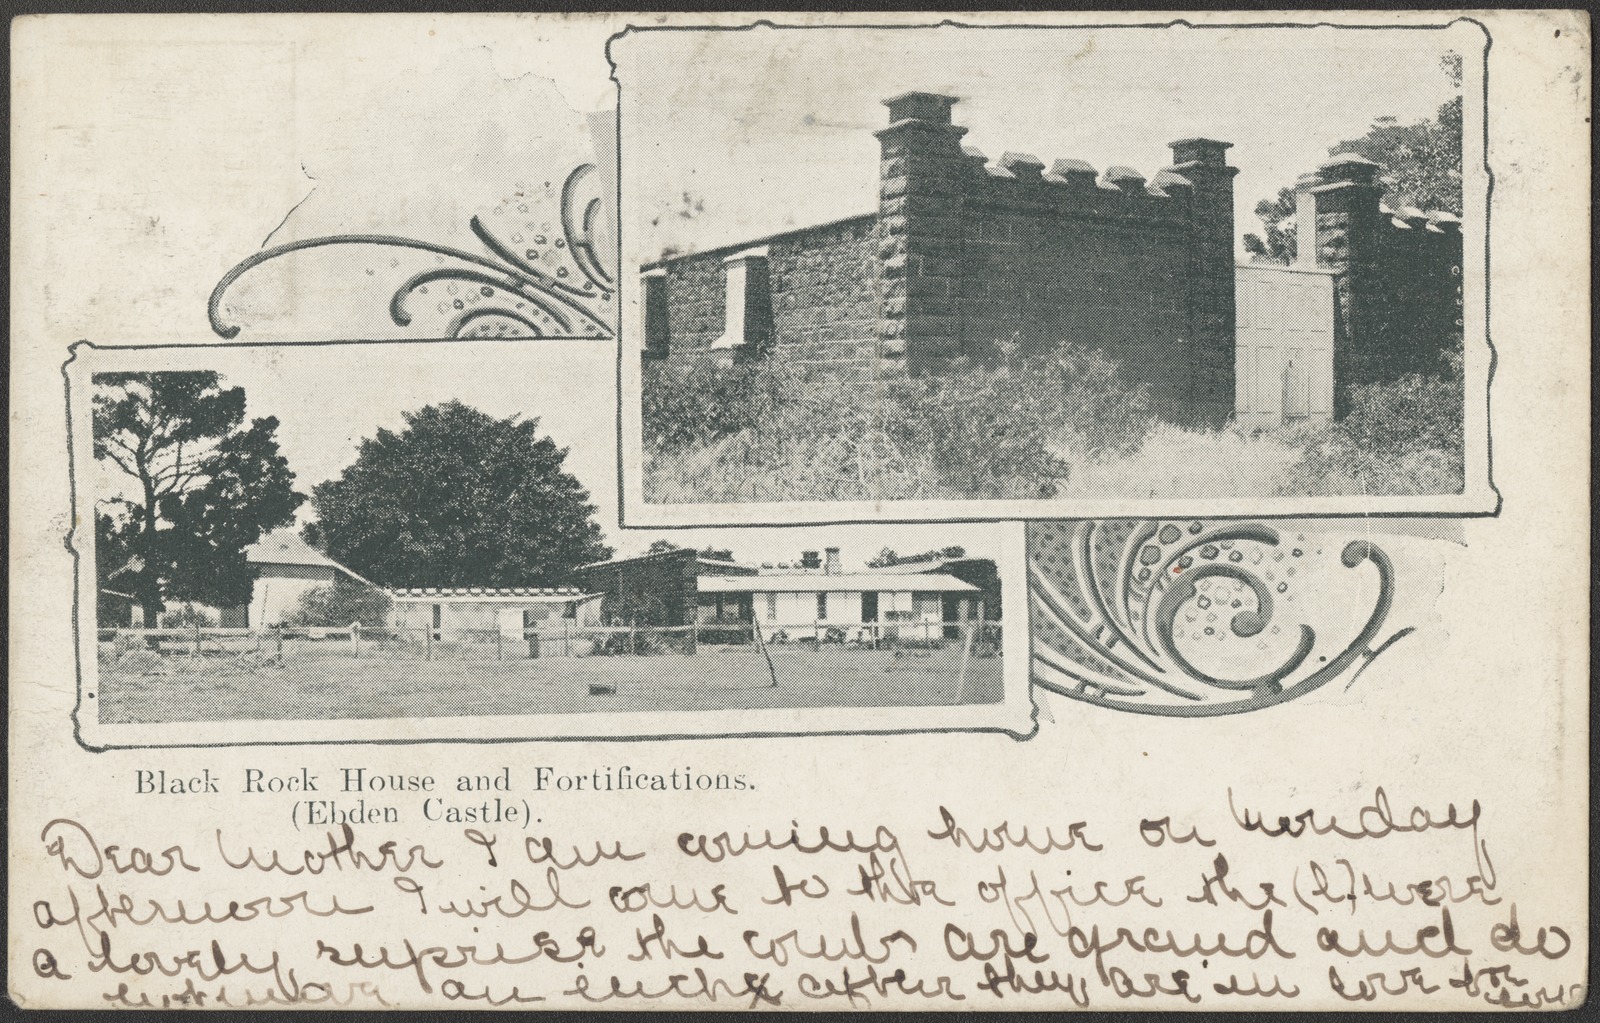 Black Rock House and Fortifications.
(Ebden Castle).
Dear Mother I am coming home on Monday
afternoon I will come to the office the (L) were
a lovely suprise the combs are grand and do
not move an inche after they are in love